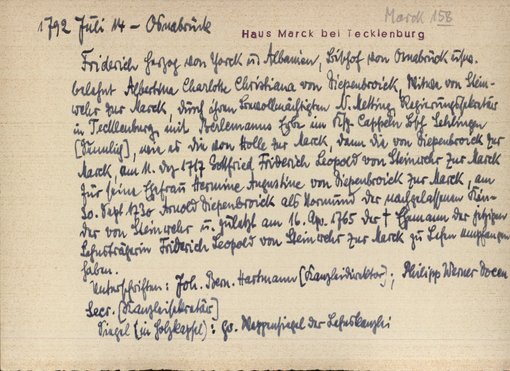 Marck 158
1792 Juli 14 – Osnabrück
Haus Marck bei Tecklenburg
Friderich Herzog von Yorck u. Albanien, Bischof von Osnabrück usw.
belehnt Albertina Charlotte Christiana von Diepenbroick, Witwe von Stein-
wehr zur Marck, durch ihren Bevollmächtigten N. Meting, Regierungssekretär
in Tecklenburg, mit Boerlemanns Erbe im Ksp. Cappeln Bsch. Sehlingen
, wie es die von Holle zur Marck, dann die von Diepenbroick zur
Marck, am 11. Dez. 1717 Gottfried Friderich Leopold von Steinwehr zur Marck
für seine Ehefrau Hermine Augustine von Diepenbroick zur Marck, am
20. Sept. 1730 Arnold Diepenbroick als Vormund der nachgelassenen Kin-
der von Steinwehr u. zuletzt am 16. Apr. 1765 der † Ehemann der jetzigen
Lehnsträgerin Friderich Leopold von Steinwehr zur Marck zu Lehn empfangen
haben.
Unterschriften: Joh. Bern. Hartmann [Kanzleidirektor], Philipp Werner Docen
Secr. [Kanzleisekretär]
Siegel (in Holzkapsel): gr. Wappensiegel der Lehnskanzlei